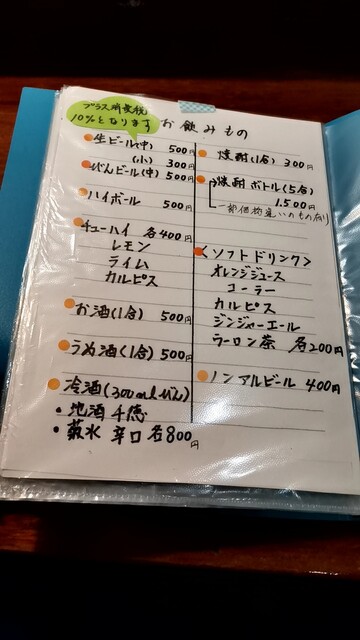 プラス消費税
10%となります
お飲みもの
生ビール(中) 500円
(小) 300円
びんビール(中) 500円
ハイボール 500円
チューハイ 各400円
レモン
ライム
カルピス
お酒(1合) 500円
うめ酒(1合) 500円
冷酒(300mlびん)
・地酒 千徳
・薪水 辛口 各800円
焼酎(1合) 300円
焼酎ボトル(5合)
1.500円
一部価格違いのもの有り
<ソフトドリンク>
オレンジジュース
コーラー
カルピス
ジンジャーエール
ウーロン茶 各200円
ノンアルビール 400円